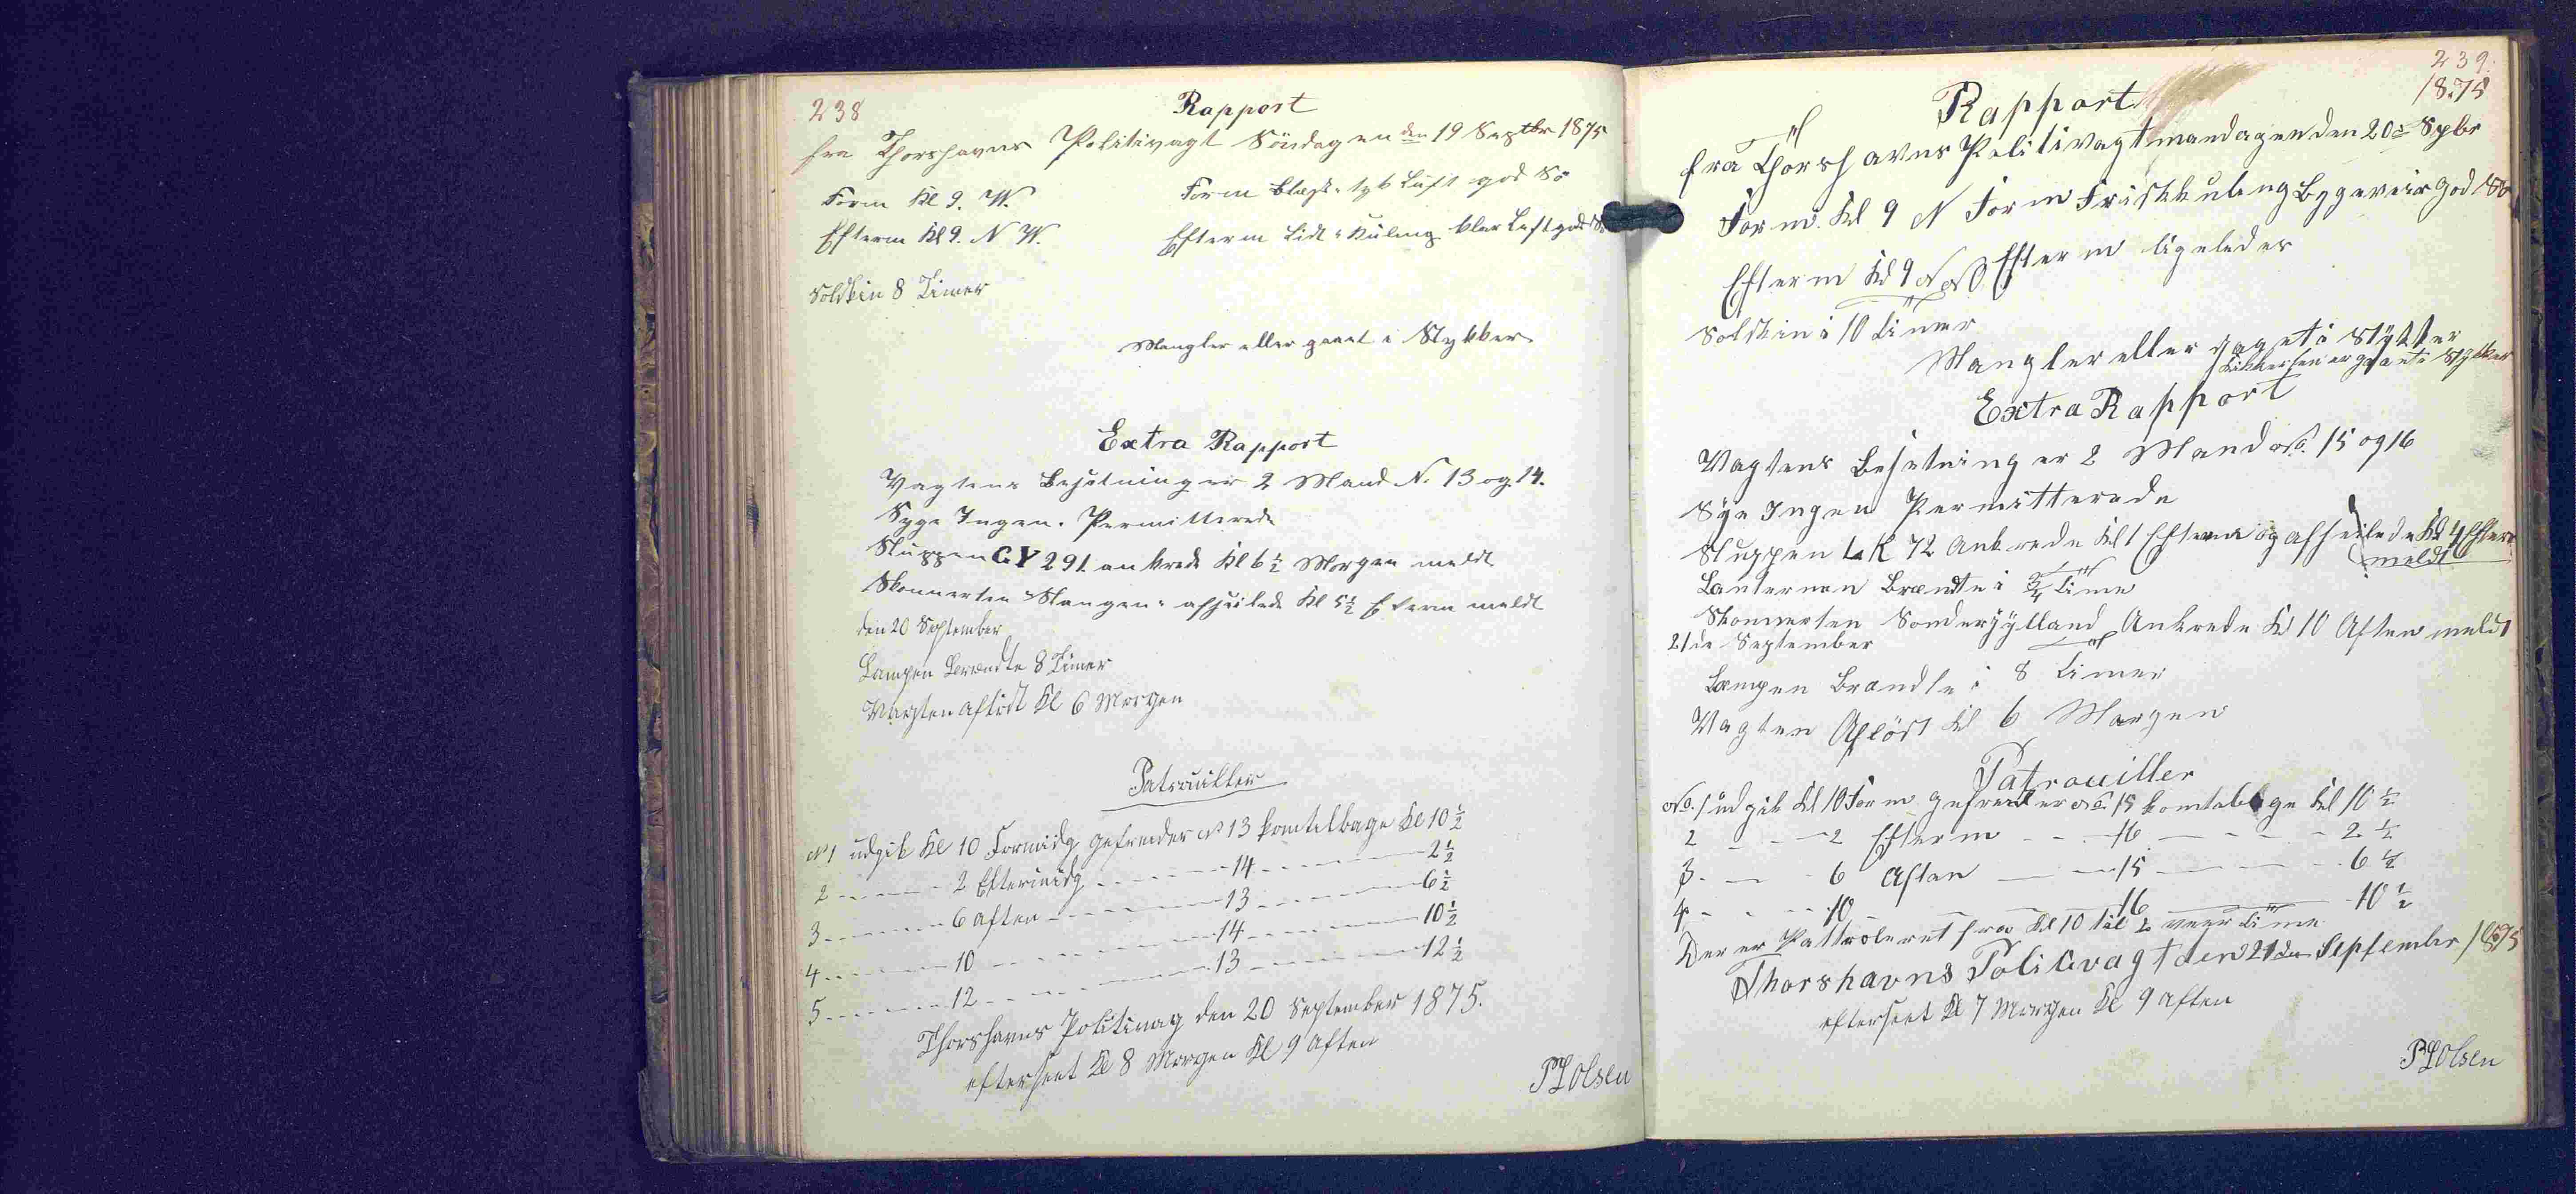 238
Rapport
fra Thorshavns Politivagt Söndagen den 19 Septbr 1875
Form Kl 9. W. Form blæst. tyk Luft god Sö
Efterm Kl 9. N W. Efterm Lidt Kuling klar Luft god
Solskin 8 Timer
Mangler eller gaaet i Stykker
Extra Rapport
Vagtens Besætning er 2 Mand N. 13 og 14.
Syge Ingen. Permitterede
Sluppen GY 291 ankrede Kl 6 1/2 Morgen meldt
Skonnerten afseilede Kl 5 1/2 Efterm meldt
den 20 September
Lampen Brændte 8 Timer
Vagten aflöst Kl 6 Morgen
Patrouiller
N 1 udgik Kl 10 Formidg gefreider N 13 kom tilbage Kl 10 1/2
2 - - - - 2 Eftermidg - - - - 14 - - - - 2 1/2
3 - - - - 6 Aften - - - - 13 - - - - 6 1/2
4 - - - - 10 - - - - 14 - - - - 10 1/2
5 - - - - 12 - - - - 13 - - - - 12 1/2
Thorshavns Politivag den 20 September 1875.
efterseet Kl 8 Morgen Kl 9 Aften
PLOlsen
239.
1875
Rapport
fra Thorshavns Politivagt mandagen den 20de Spbr
Form. Kl 9 N Form Frisk kuling Bygeveir god Sö
Efterm Kl 9 Efterm ligeledes
Solskin i 10 Timer
Mangler eller gaaet i Stykker
er gaaet i Stykker
Extra Rapport
Vagtens Besetning er 2 Mand No. 15 og 16
Sye Ingen Permitterede
Sluppen LK 72 Ankrede Kl 1 Efterm og afseilede Kl 4 Efterm
meldt
Lanternen Brændte i 3/4 Time
Skonnerten Sonderjylland Ankrede Kl 10 Aften meldt
21de September
Lampen Brændte i 8 Timer
Vagten Aflöst Kl 6 Morgen
Patrouiller
No. 1 udgik Kl 10 Form gefreider No. 15 kom tilbage Kl 10 1/2
2 - - - 2 Efterm - - 16 - - - - 2 1/2
3 - - - 6 Aften - - 15 - - - - 6 1/2
4 - - - 10 - - - 16 - - - - 10 1/2
Der er Pattroleret fra Kl 10 til 2 vær Time
Thorshavns Politivagt den 21de September 1875
efterseet Kl 7 Morgen Kl 9 Aften
PLOlsen